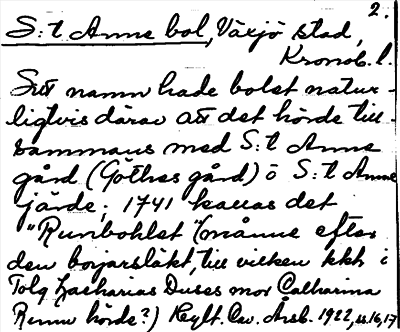 2.
S:t Anne bol, Växjö stad,
Kronob. l.
Sitt namn hade bolet natur-
ligtvis därav att det hörde till-
sammans med S:t Anne
gård (Göthes gård) o S:t Anne
järde; 1741 kallas det
"Runbohlet" (månne efter
den borjarsläkt, till vilken kkh i
Tolg Zacharias Duses mor Catharina
Runn hörde?) Reylt. Cav. Årsb. 1922, ss. 16, 17